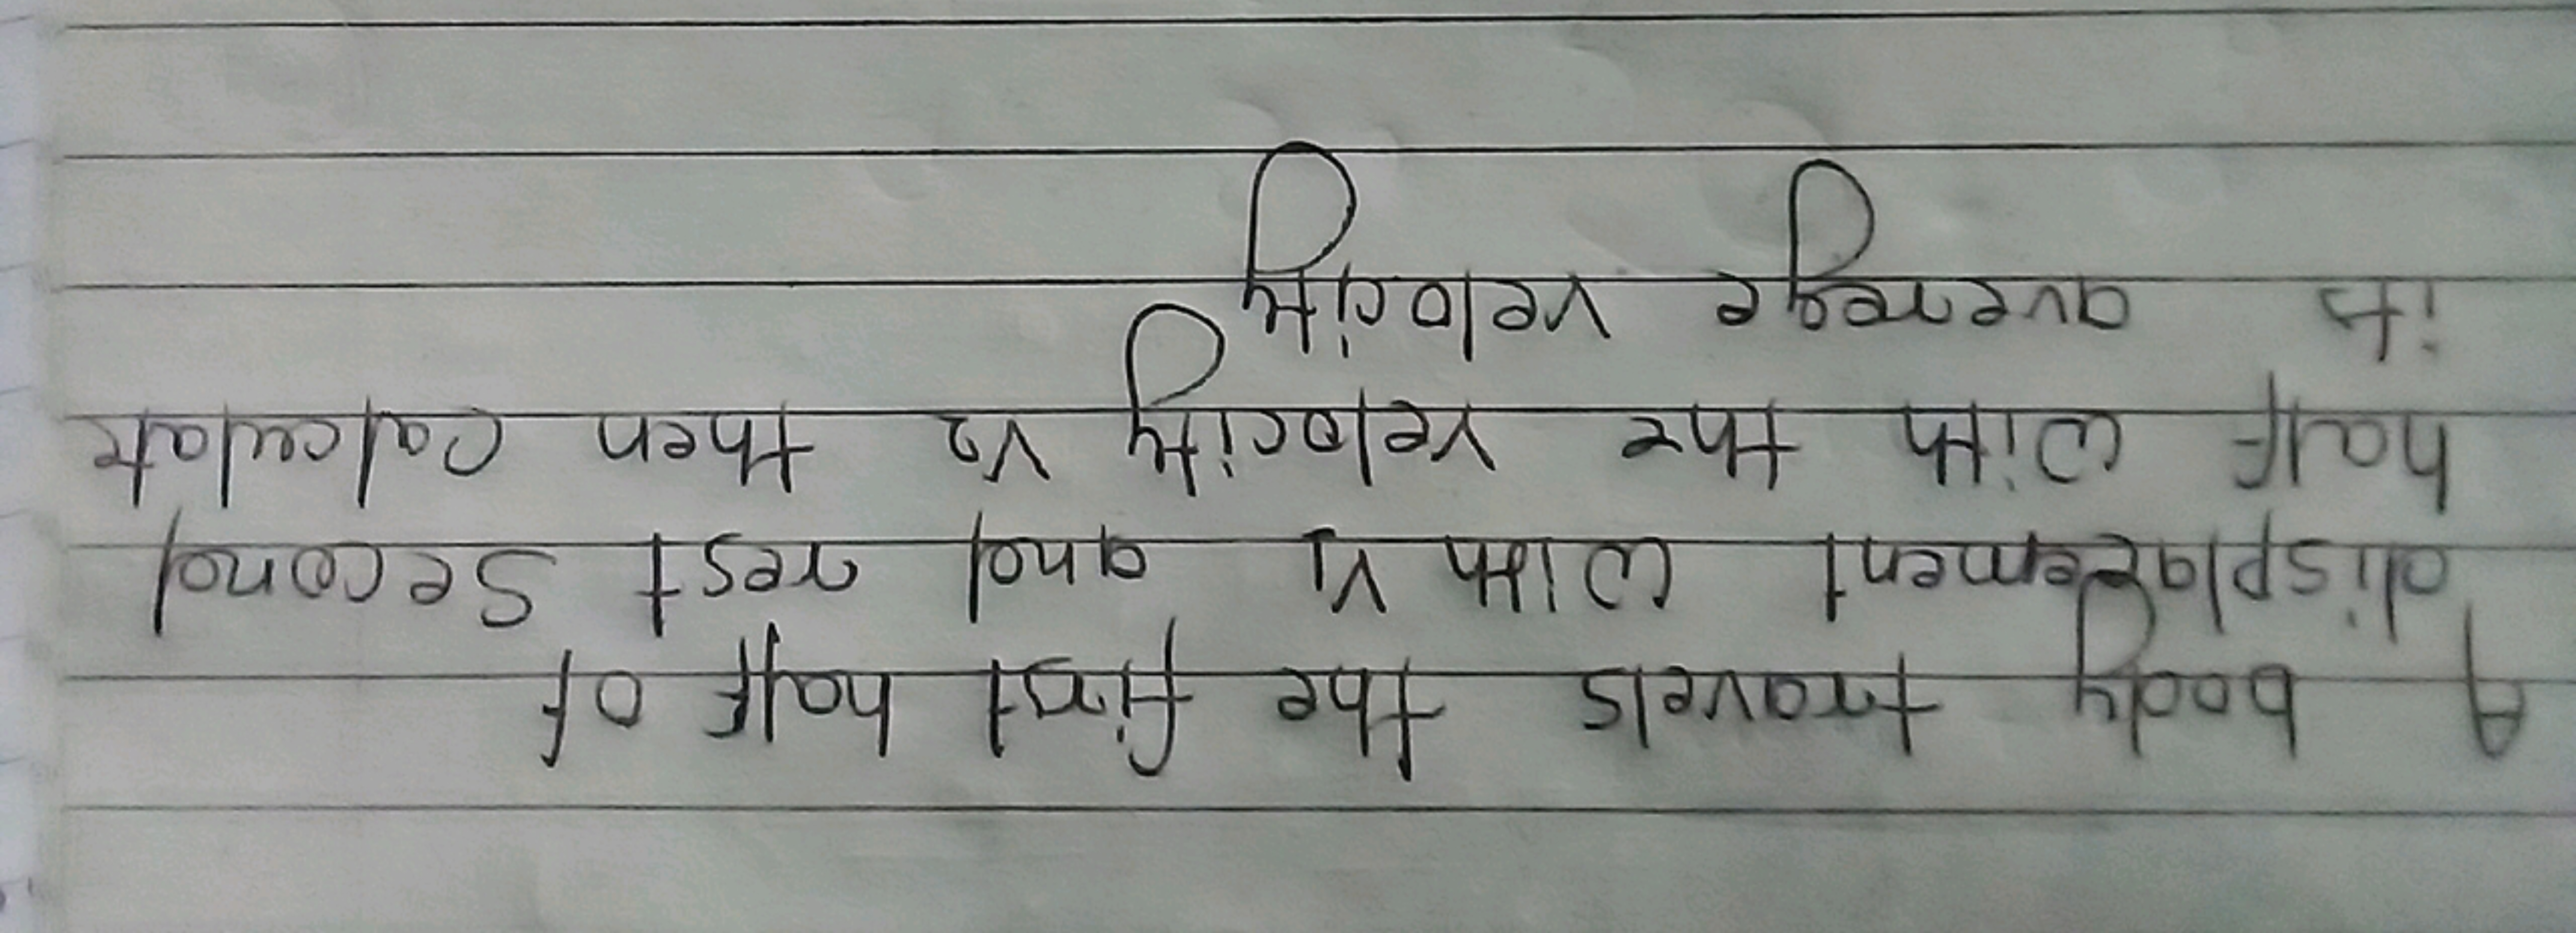 A body travels the first half of
displacement with V1 and rest second
half with the velocity V2 then calculate
its averege velocity